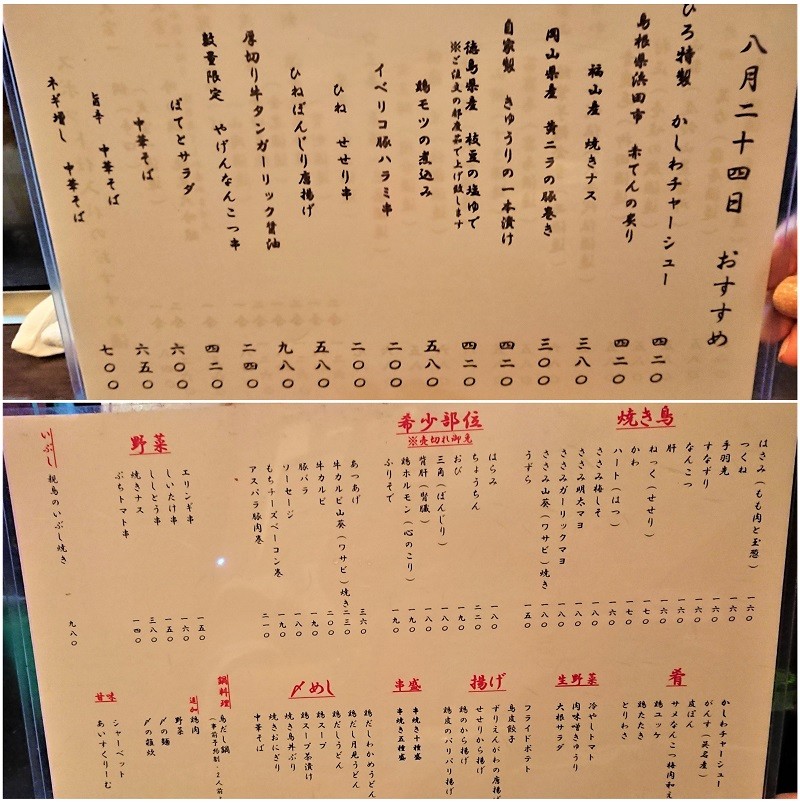 八月二十四日 おすすめ
ひろ特製 かしわチャーシュー 四二〇
島根県浜田市 赤てんの炙り 四二〇
福山産 焼きナス 三八〇
岡山県産 黄ニラの豚巻き 三〇〇
自家製 きゅうりの一本漬け 四二〇
徳島県産 枝豆の塩ゆで 四二〇
※ご注文の都度茹で上げ致します
鶏モツの煮込み 五八〇
イベリコ豚ハラミ串 二〇〇
ひね せせり串 二〇〇
ひねぼんじり唐揚げ 五八〇
厚切り牛タンガーリック醤油 九八〇
数量限定 やげんなんこつ串 二四〇
ぽてとサラダ 四二〇
中華そば 六〇〇
旨辛 中華そば 六五〇
ネギ増し 中華そば 七〇〇
焼き鳥
はさみ(もも肉と玉葱) 一六〇
つくね 一六〇
手羽先
すなずり 一六〇
なんこつ 一六〇
肝 一六〇
ねっく(せせり) 一七〇
かわ 一七〇
ハート(はつ) 一六〇
ささみ梅しそ 一八〇
ささみ明太マヨ 一八〇
ささみガーリックマヨ 一八〇
ささみ山葵(ワサビ)焼き 一八〇
うずら 一五〇
希少部位
※売切れ御免
はらみ 一八〇
ちょうちん 二二〇
おび 一九〇
三角(ぼんじり) 一八〇
背肝(腎臓) 一八〇
鶏ホルモン(心のこり) 一九〇
ふりそで 一九〇
あつあげ 三六〇
牛カルビ山葵(ワサビ)焼き 二三〇
牛カルビ 二〇〇
豚バラ 一九〇
ソーセージ 一八〇
もちチーズベーコン巻 一九〇
アスパラ豚肉巻 二一〇
野菜
エリンギ串 一五〇
しいたけ串 一六〇
ししとう串 一五〇
焼きナス 三八〇
ぷちトマト串 一四〇
いぶし
親鳥のいぶし焼き 九八〇
肴
かしわチャーシュー
がんす(呉名産)
皮ぽん
サメなんこつ梅肉和え
鶏ユッケ
鶏たたき
とりわさ
生野菜
冷やしトマト
肉味噌きゅうり
大根サラダ
揚げ
フライドポテト
鳥皮餃子
ずりえんがわの唐揚げ
せせりから揚げ
鶏のから揚げ
鶏皮のパリパリ揚げ
串盛
串焼き十種盛
串焼き五種盛
〆めし
鶏だしわかめうどん
鶏だし月見うどん
鶏だしうどん
鶏スープ
鶏スープ茶漬け
焼き鳥丼ぶり
焼きおにぎり
中華そば
鍋料理
鳥だし鍋
(事前予約制・2人前
追加
鶏肉
野菜
〆の麺
〆の雑炊
甘味
シャーベット
あいすくりーむ